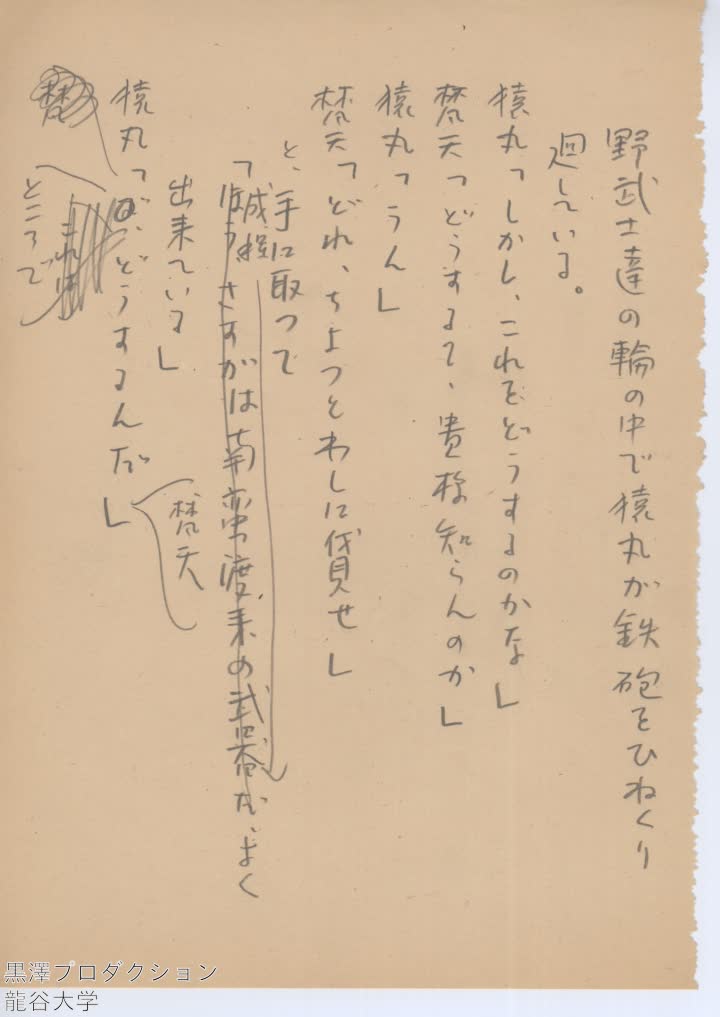 野武士達の輪の中で猿丸が鉄砲をひねくり
廻している。
猿丸「しかし、これをどうするのかな」
梵天「どうするて、貴様知らんのか」
猿丸「うん」
梵天「どれ、ちよつとわしに貸せ」
と、手に取つて
「ほう、さすがは南蛮渡来の武器だ、よく
出来ている」
猿丸「で、どうするんだ」
梵天
梵
これは
ところで
黒澤プロダクション
龍谷大学